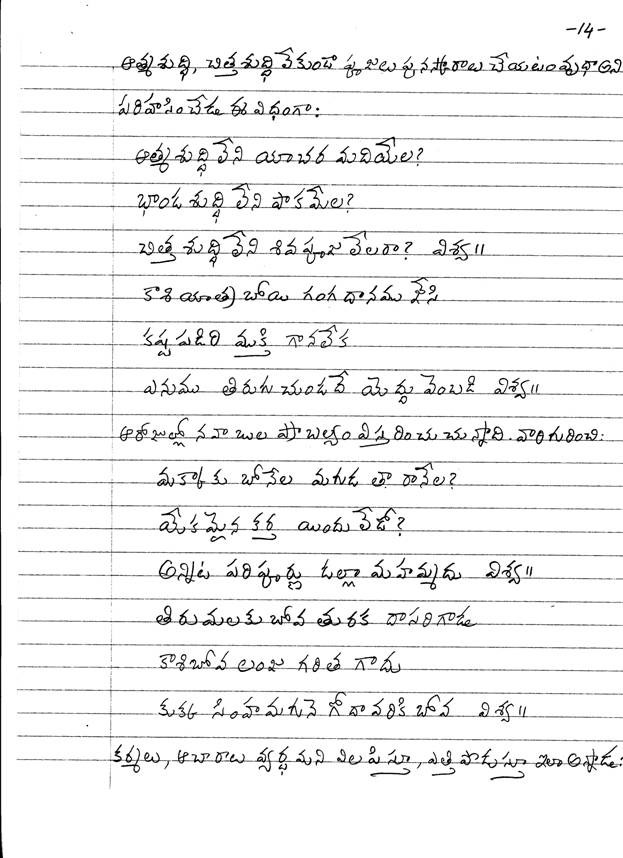 -14-
ఆత్మశుద్ధి, చిత్తశుద్ధి లేకుండా పూజలు పునస్కారాలు చేయటం వృథా అని
పరిహసించేడు ఈ విధంగా:
ఆత్మ శుద్ధి లేని యాచర మదియేల?
భాండ శుద్ధి లేని పాకమేల?
చిత్త శుద్ధి లేని శివపూజ లేలరా? విశ్వ॥
కాశి యాత్ర బోయి గంగ దానము జేసి
కష్ట పడిరి ముక్తి గానలేక
ఎనుము తిరుగు చుండదే యెద్దు వెంబడి విశ్వ॥
ఆరోజుల్లో నవాబుల ప్రాబల్యం విస్తరించు చున్నాది. వారి గురించి:
మక్కాకు బోనేల మగుడ తా రానేల?
యేకమైన కర్త యిందు లేడో?
అన్నిట పరిపూర్ణు డల్లా మహమ్మదు విశ్వ॥
తిరుమలకు బోవ తురక దాసరిగాడు
కాశిబోవ లంజ గరిత గాదు
కుక్క సింహమగునె గోదావరికి బోవ విశ్వ॥
కర్మలు, ఆచారాలు వ్యర్థమని విలపిస్తూ, ఎత్తి పొడుస్తూ ఇలా అన్నాడు: